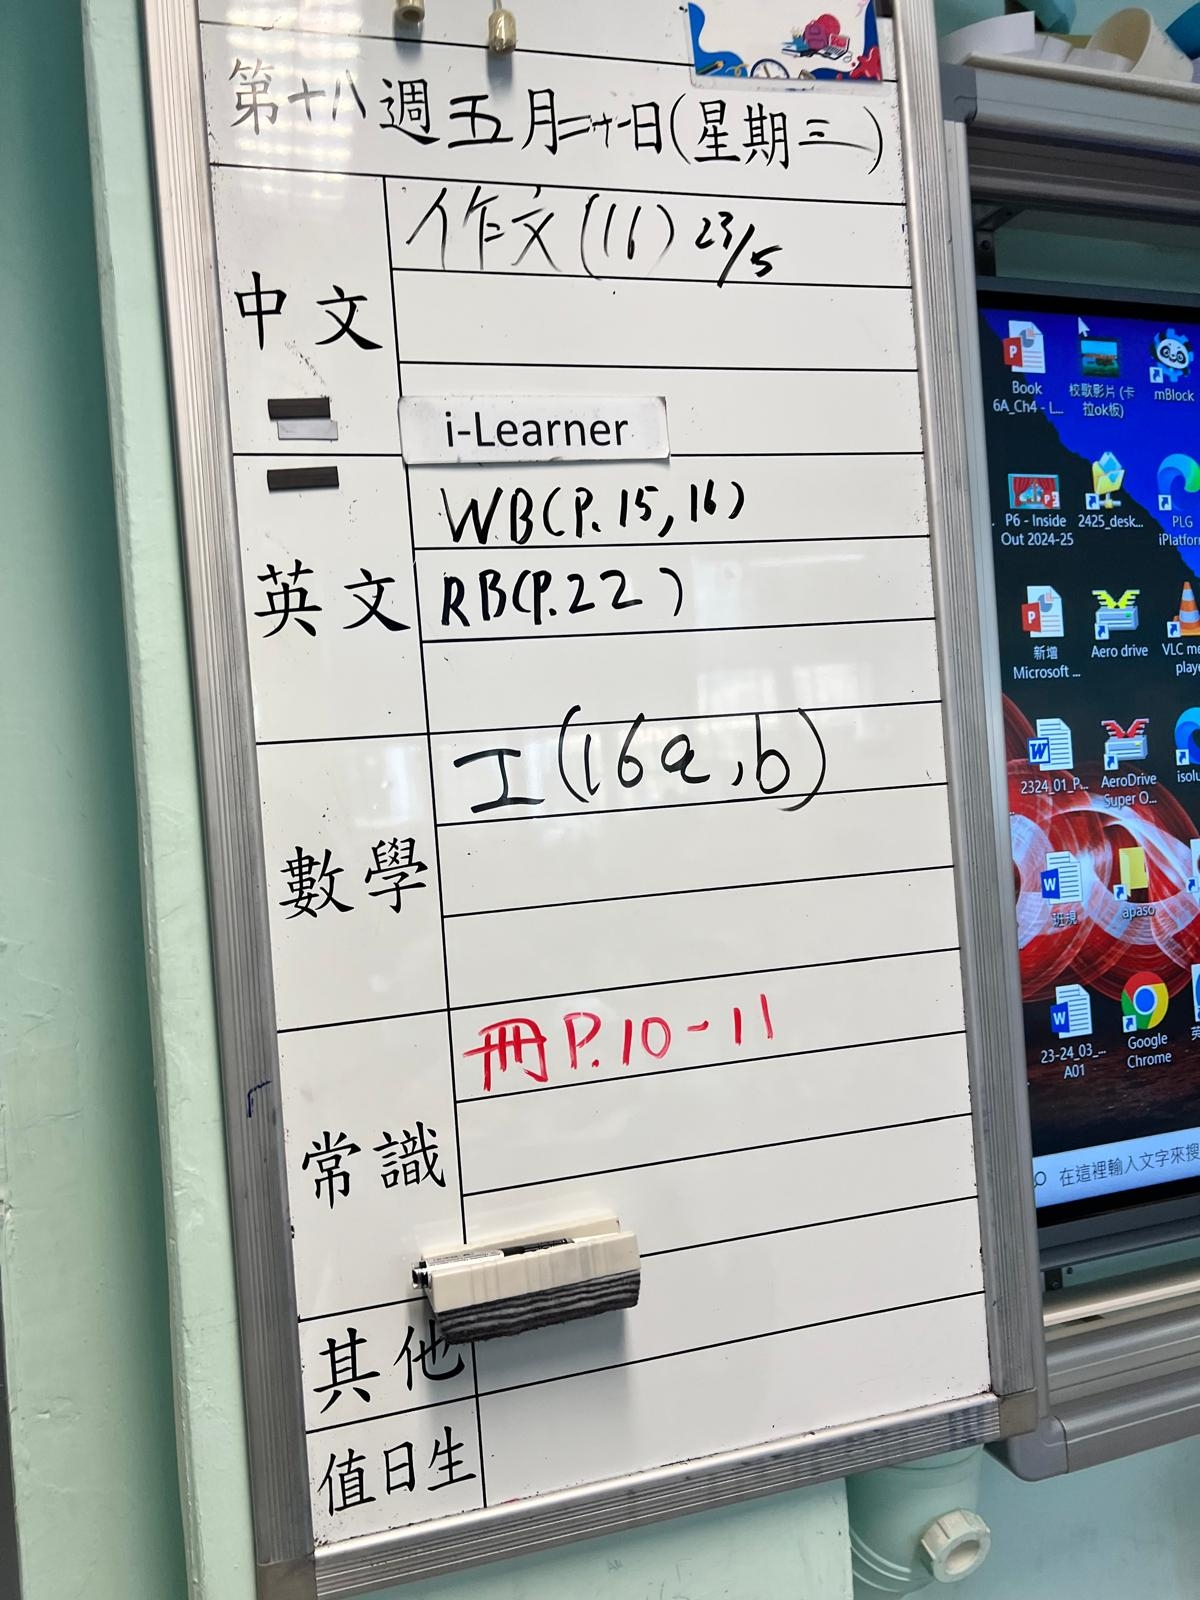 第十八週五月二十一日(星期三)
中文
作文(16) 23/5
i-Learner
英文
WB(P.15,16)
RB(P.22)
數學
工(16a,b)
常識
冊P.10-11
其他
值日生
Book
6A_Ch4 - L...
校歌影片 (卡
拉ok板)
mBlock
P6 - Inside
Out 2024-25
2425_desk...
PLG
iPlatfor
新增
Microsoft ...
Aero drive
VLC me
playe
2324_01_P...
AeroDrive
Super O...
isolu
班規
apaso
23-24_03_...
A01
Google
Chrome
英
在這裡輸入文字來搜